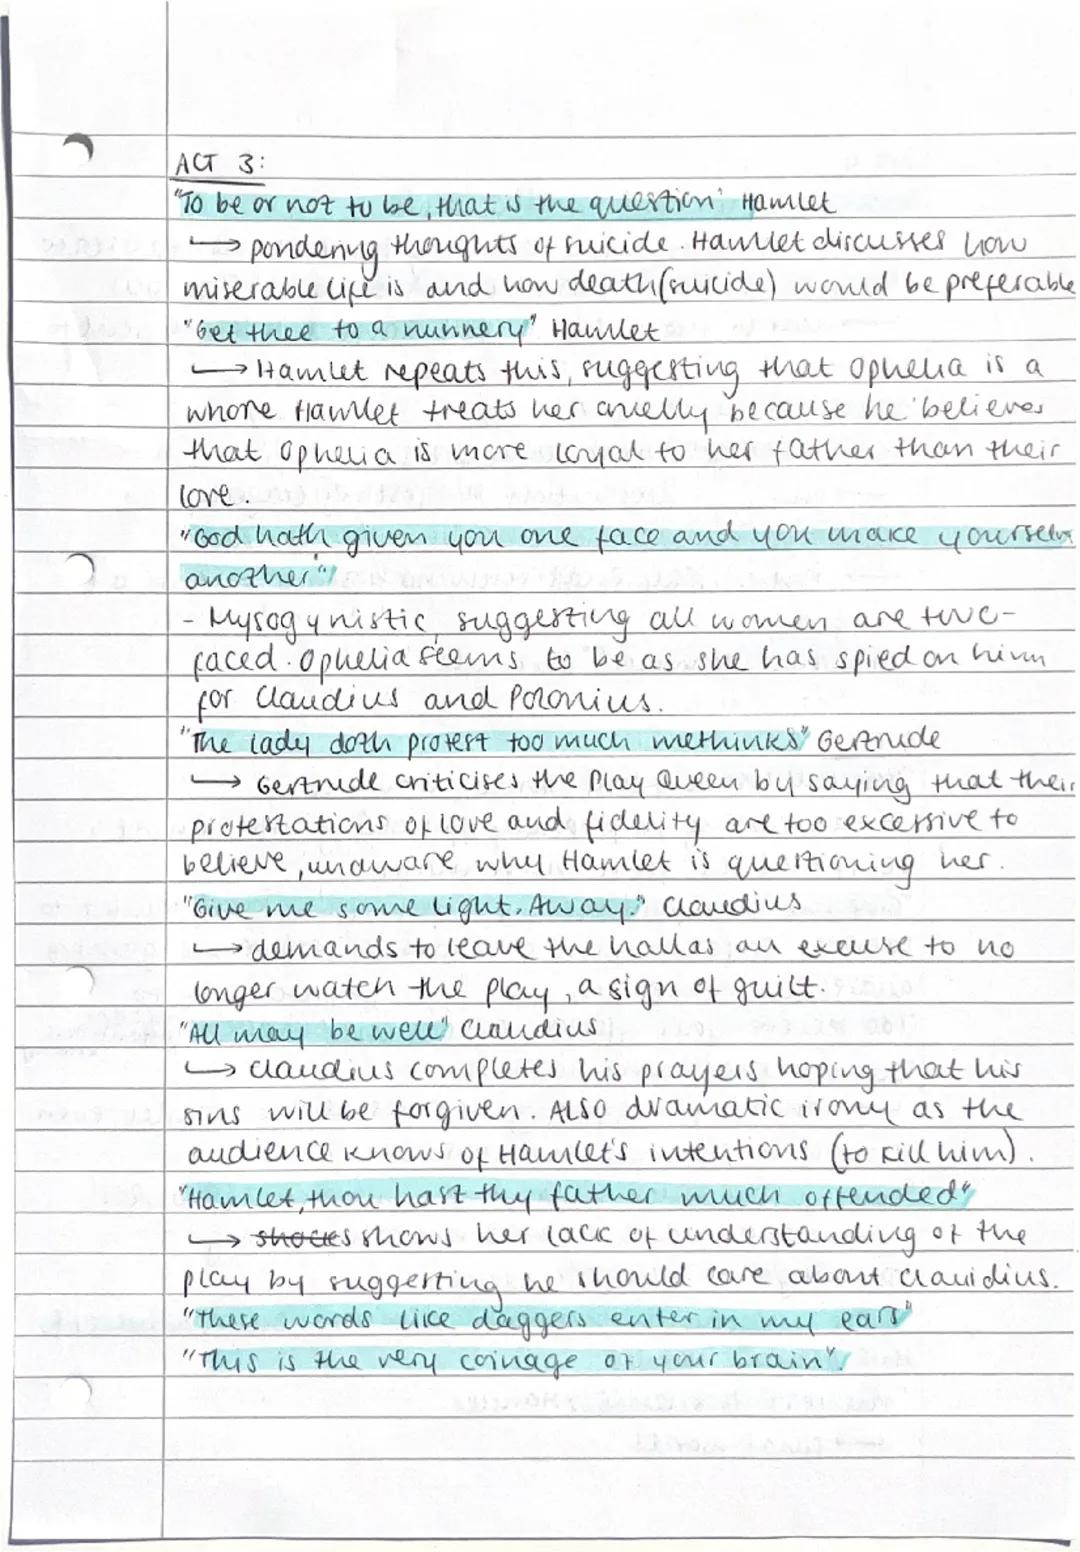 ACT 3:
"To be or not to be, that is the question" Hamlet
→ pondering thoughts of suicide. Hamlet discusses how
miserable life is and how death (suicide) would be preferable
"Get thee to a nunnery" Hamlet
→ Hamlet repeats this, suggesting that Ophelia is a
whore Hamlet treats her cruelly because he believes
that Ophelia is more loyal to her father than their
love.
"God hath given you one face and you make yourselv
another"
- Mysogynistic, suggesting all women are two-
faced. Ophelia seems to be as she has spied on him
for Claudius and Polonius.
"The lady doth protest too much methinks" Gertrude
→ Gertrude criticises the Play Queen by saying that their
protestations of love and fidelity are too excessive to
believe, unaware why Hamlet is questioning her.
"Give me some light. Away." Claudius
→ demands to leave the hall as an excuse to no
longer watch the play, a sign of guilt.
"All may be well" Claudius
→ Claudius completes his prayers hoping that his
sins will be forgiven. Also dramatic irony as the
audience knows of Hamlet's intentions (to kill him).
"Hamlet, thou hast thy father much offended"
→ shocks shows her lack of understanding of the
play by suggesting he should care about Clauidius.
"These words like daggers enter in my ears"
"This is the very coinage of your brain".